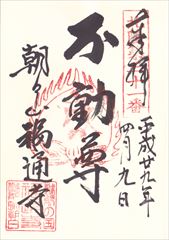 奉拝
平成廿九年
四月九日
不動尊
朝日山福通寺